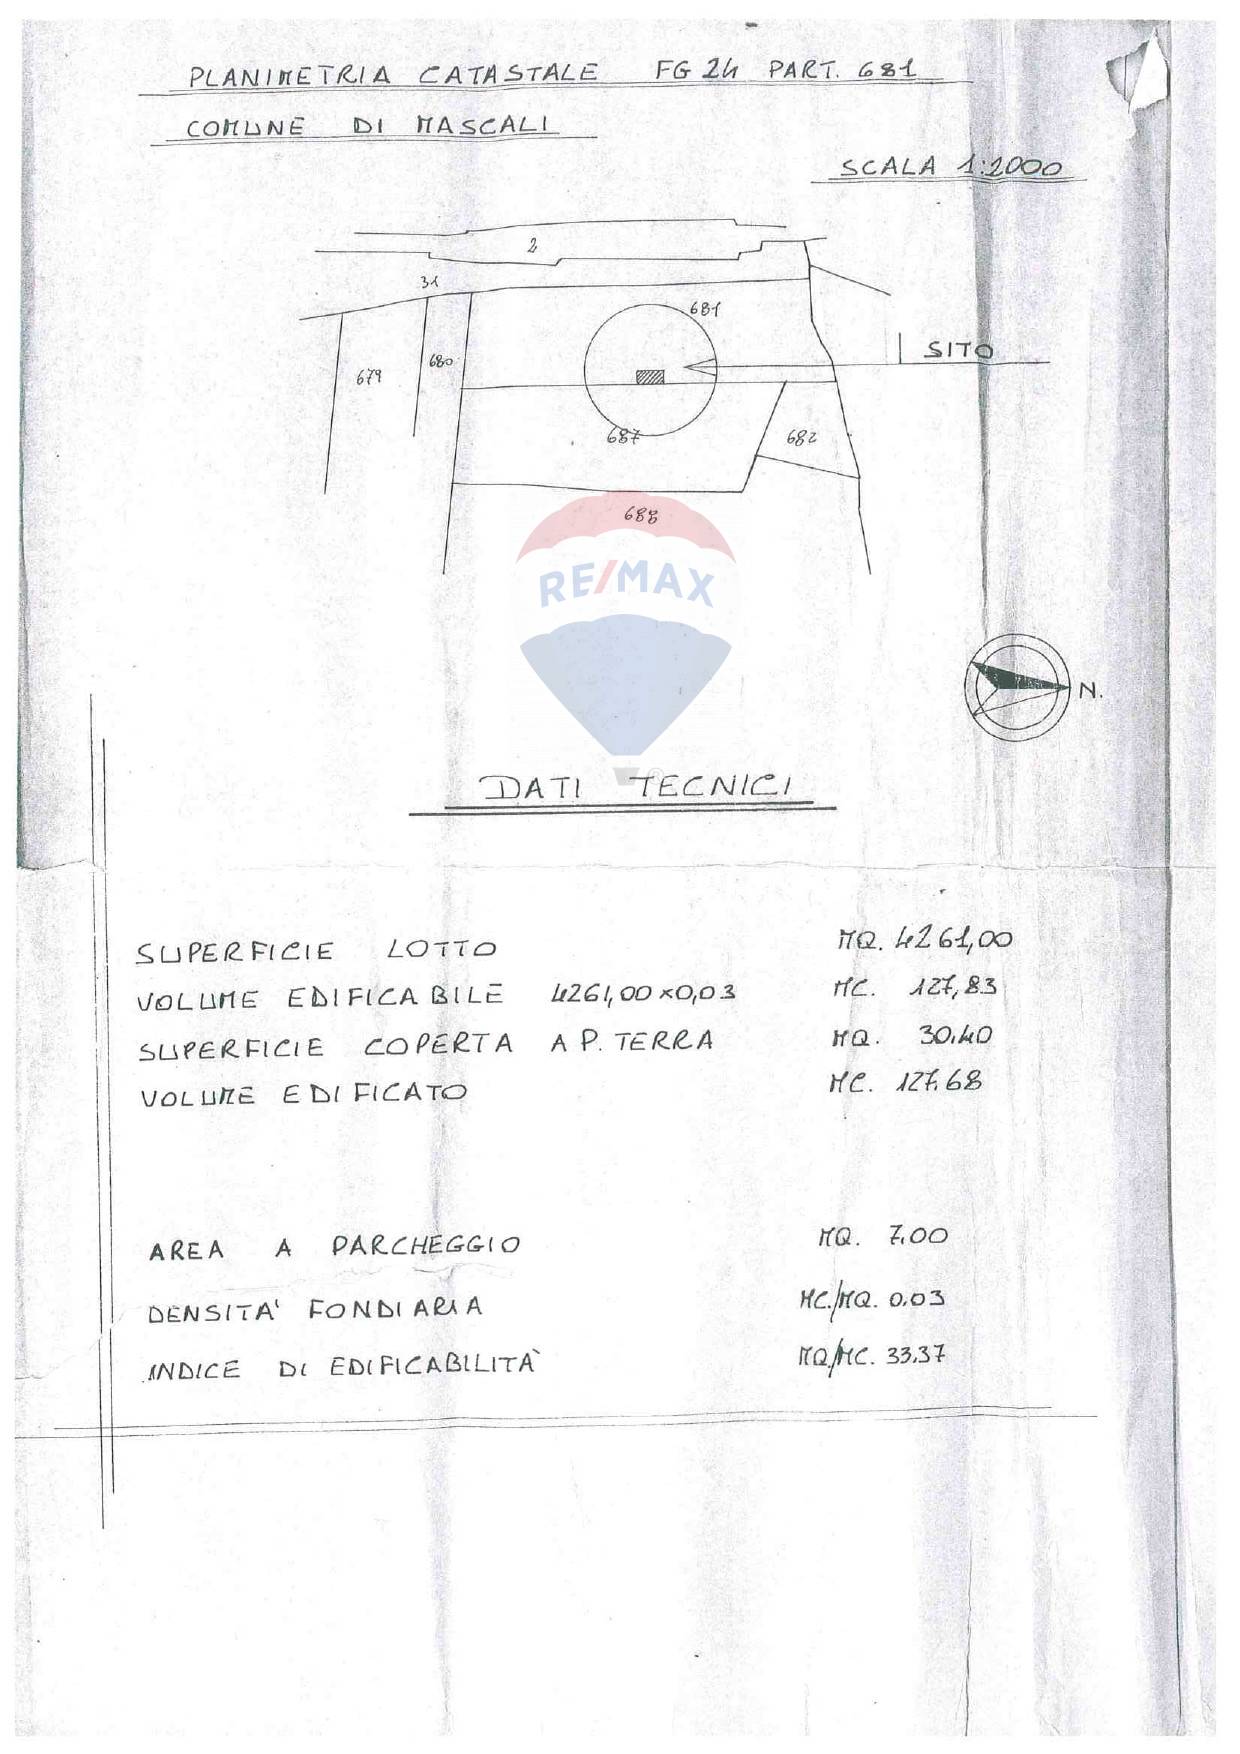 PLANIMETRIA CATASTALE FG 24 PART. 681
COMUNE DI MASCALI
SCALA 1:2000
2
31
681
SITO
680
679
687
682
688
RE/MAX
N.
DATI TECNICI
SUPERFICIE LOTTO MQ. 4261,00
VOLUME EDIFICABILE 4261,00x0,03 MC. 127,83
SUPERFICIE COPERTA A P. TERRA MQ. 30.40
VOLUME EDIFICATO MC. 127.68
AREA A PARCHEGGIO MQ. 7.00
DENSITA' FONDIARIA MC./MQ. 0.03
INDICE DI EDIFICABILITÀ MQ/MC. 33.37